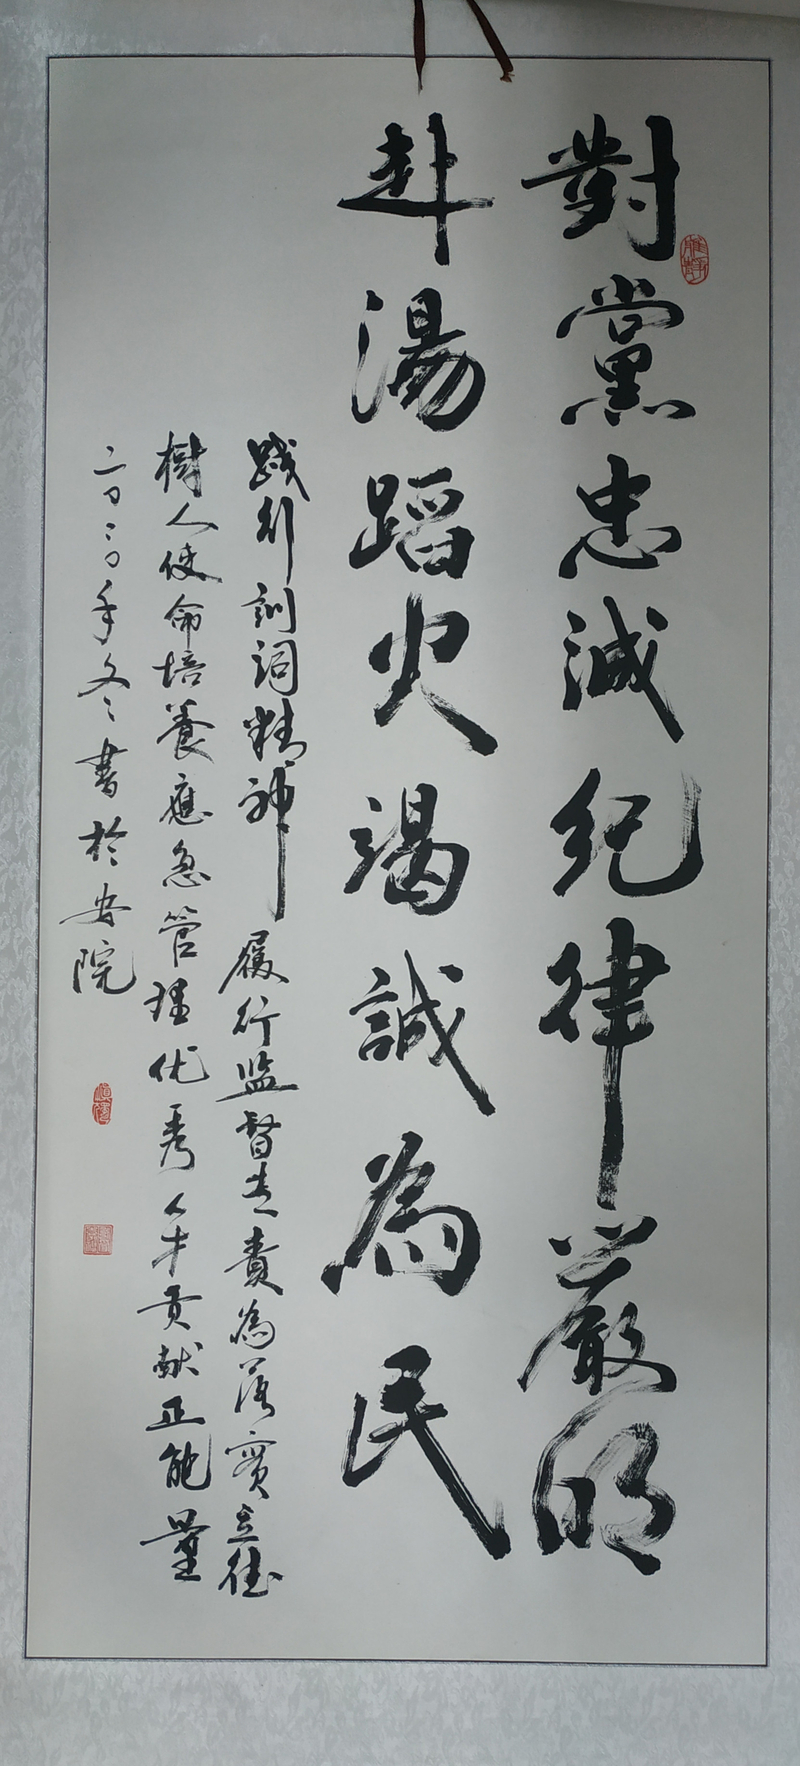 對黨忠誠紀律嚴明
赴湯蹈火竭誠為民
踐行訓詞精神履行监督专責為落實立德
樹人使命培養應急管理优秀人才贡献正能量
二〇二〇年冬書於安院